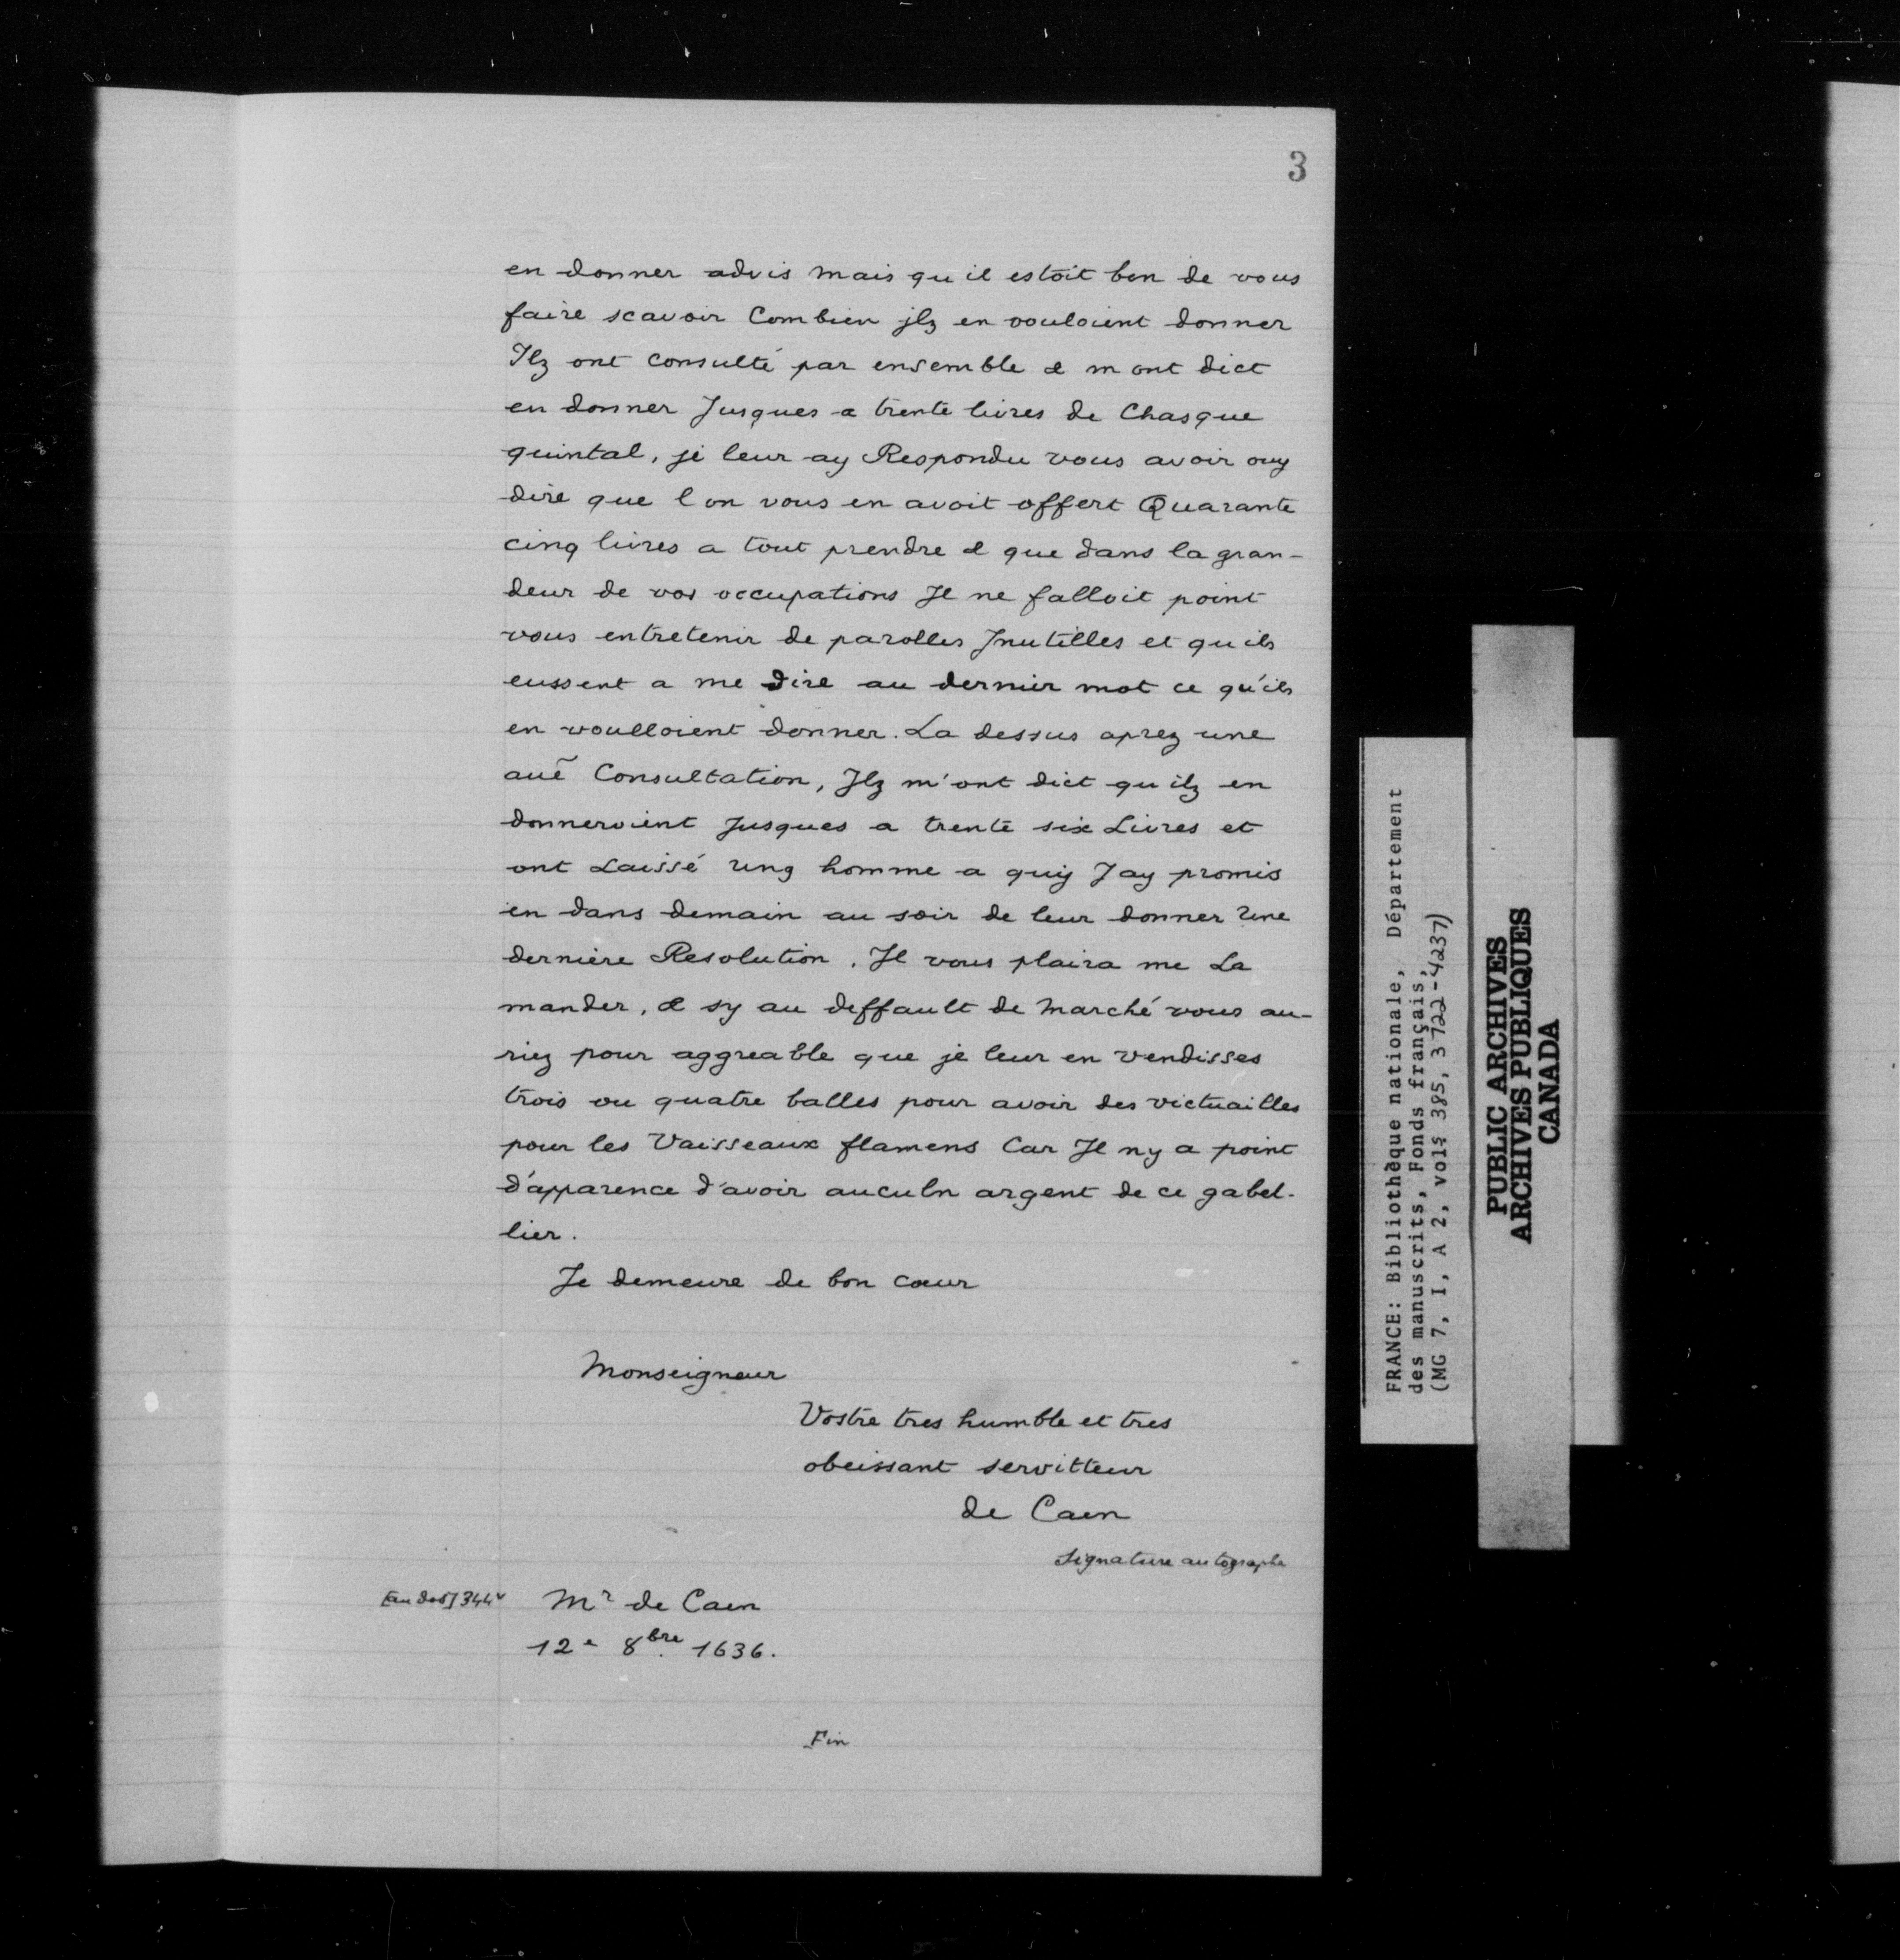 3
en donner advis mais qu il estoit bon de vous
faire scavoir Combien jlz en vouloient donner
Ilz ont consulté par ensemble & m ont dict
en donner Jusques a trente livres de Chasque
quintal, je leur ay Respondu vous avoir ouy
dire que l on vous en avoit offert Quarante
cinq livres a tout prendre & que dans la gran-
deur de vos occupations Il ne falloit point
vous entretenir de parolles Inutilles et qu ils
eussent a me dire au dernier mot ce qu'ils
en voulloient donner. La dessus aprez une
auẽ Consultation, Ilz m'ont dict qu ilz en
donneroient Jusques a trente six Livres et
ont Laissé ung homme a quij J ay promis
en dans demain au soir de leur donner Une
derniere Resolution. Il vous plaira me La
mander, & sy au deffault de Marché vous au-
riez pour aggreable que je leur en vendisses
trois ou quatre balles pour avoir des victuailles
pour les Vaisseaux flamens Car Il n y a point
d'apparence d'avoir auculn argent de ce gabel-
lier.
Je demeure de bon cœur
Monseigneur
Vostre tres humble et tres
obeissant servitteur
de Caen
Signature autographe
[au dos] 344v Mr de Caen
12e 8bre 1636.
Fin
FRANCE: Bibliothèque nationale, Département
des manuscrits, Fonds français,
(MG 7, I, A 2, vols 385, 3722-4237)
PUBLIC ARCHIVES
ARCHIVES PUBLIQUES
CANADA